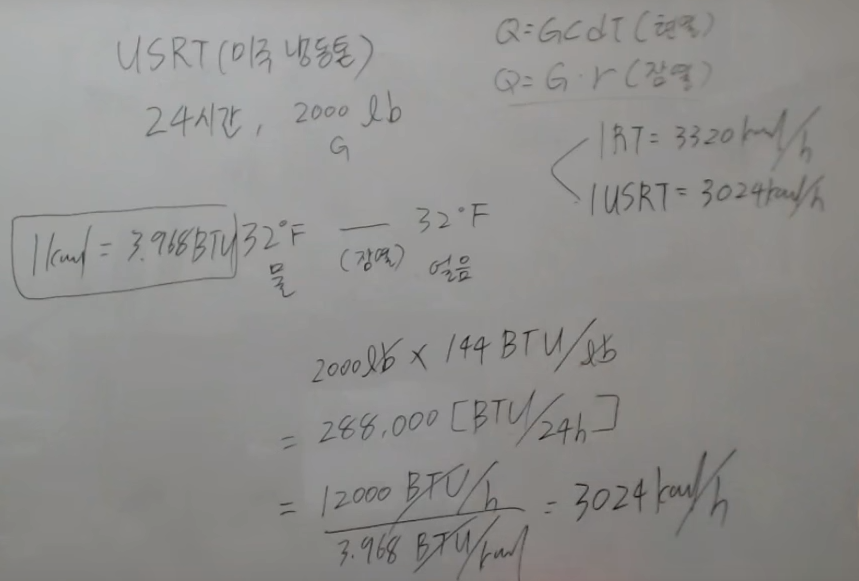 USRT(미국 냉동톤)
24시간, 2000 lb
G
Q=GCdT(현열)
Q=G·r(잠열)
1RT=3320kcal/h
1USRT=3024kcal/h
1kcal=3.968BTU
32°F — 32°F
물 (잠열) 얼음
2000lb × 144 BTU/lb
= 288,000 [BTU/24h]
= 12000 BTU/h
3.968 BTU/kcal
= 3024 kcal/h